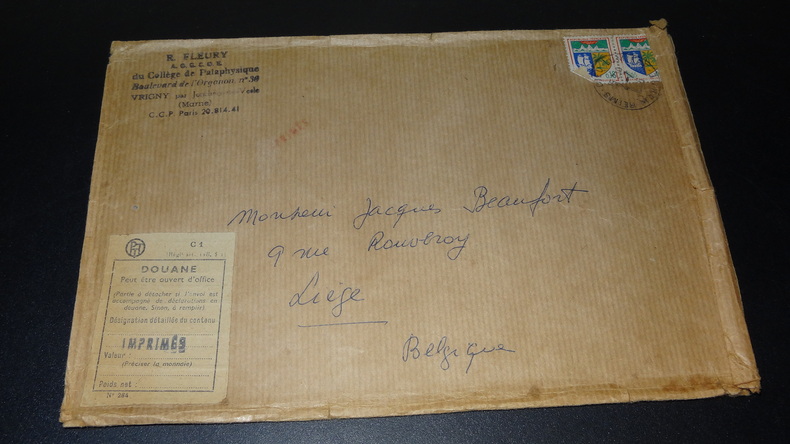 R. FLEURY
du Collège de Pataphysique
Boulevard de l'Orgation n° 30
VRIGNY, par
(Marne)
C.C.P. Paris 20.814.41
Monsieur Jacques Beaufort
9 rue Rouveroy
Liège
Belgique
C 1
DOUANE
Peut être ouvert d'office
(Partie à détacher si l'envoi est
accompagné de déclarations en
douane. Sinon, à remplir)
Désignation détaillée du contenu
IMPRIMÉS
Valeur :
(Préciser la monnaie)
Poids net :
N° 284